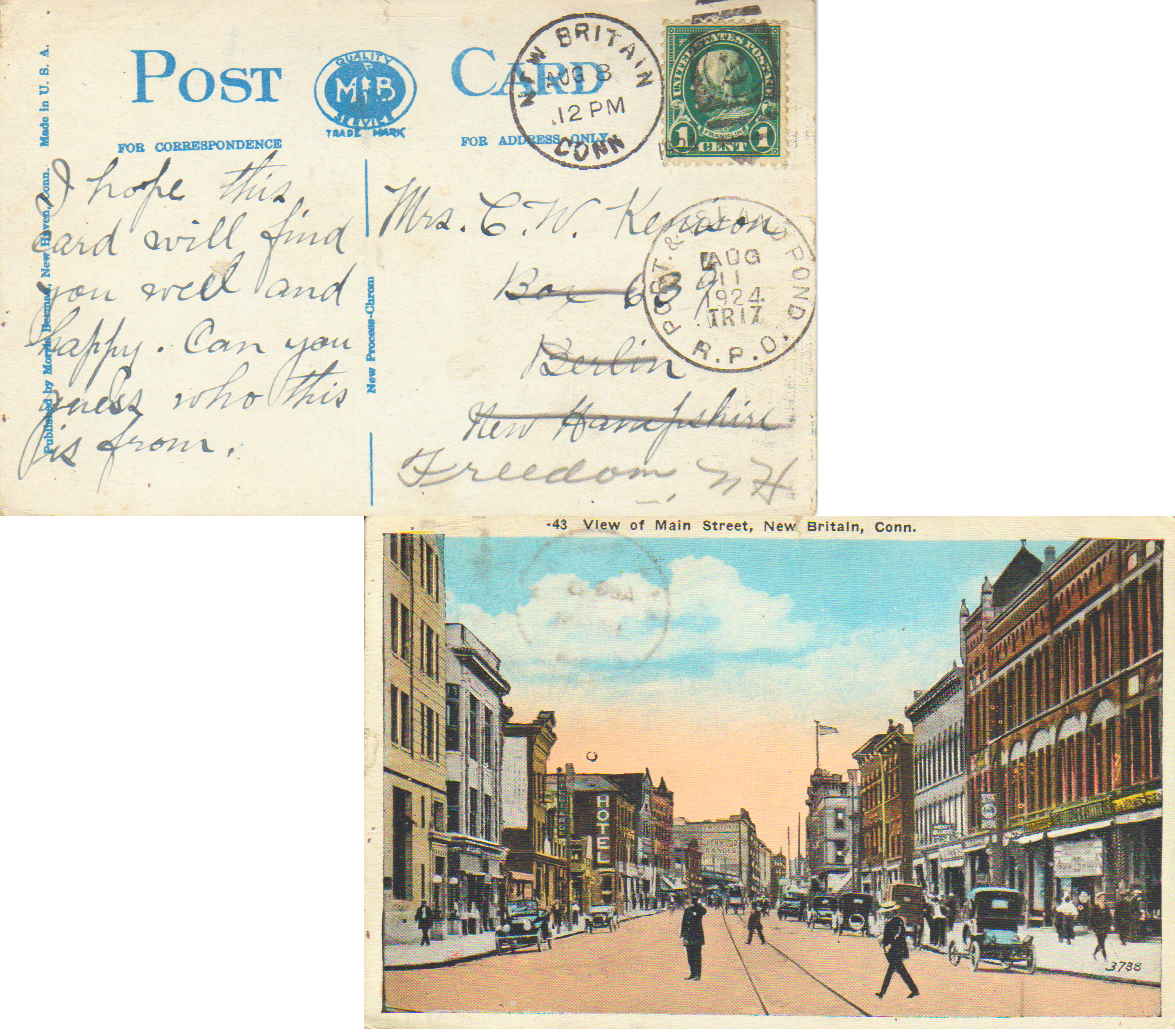 POST CARD
QUALITY
M B
TRADE MARK
FOR CORRESPONDENCE
FOR ADDRESS ONLY
NEW BRITAIN
AUG 8
12 PM
CONN
UNITED STATES POSTAGE
FRANKLIN
1 CENT 1
Published by Morris Berman, New Haven, Conn. Made in U. S. A.
New Process-Chrom
I hope this
card will find
you well and
happy. Can you
guess who this
is from.
Mrs. C. W. Kenison
Box 639
Berlin
New Hampshire
Freedom NH
PORT. & ISLAND POND
AUG
11
1924
TR17
R.P.O.
-43 View of Main Street, New Britain, Conn.
HOTEL
3738